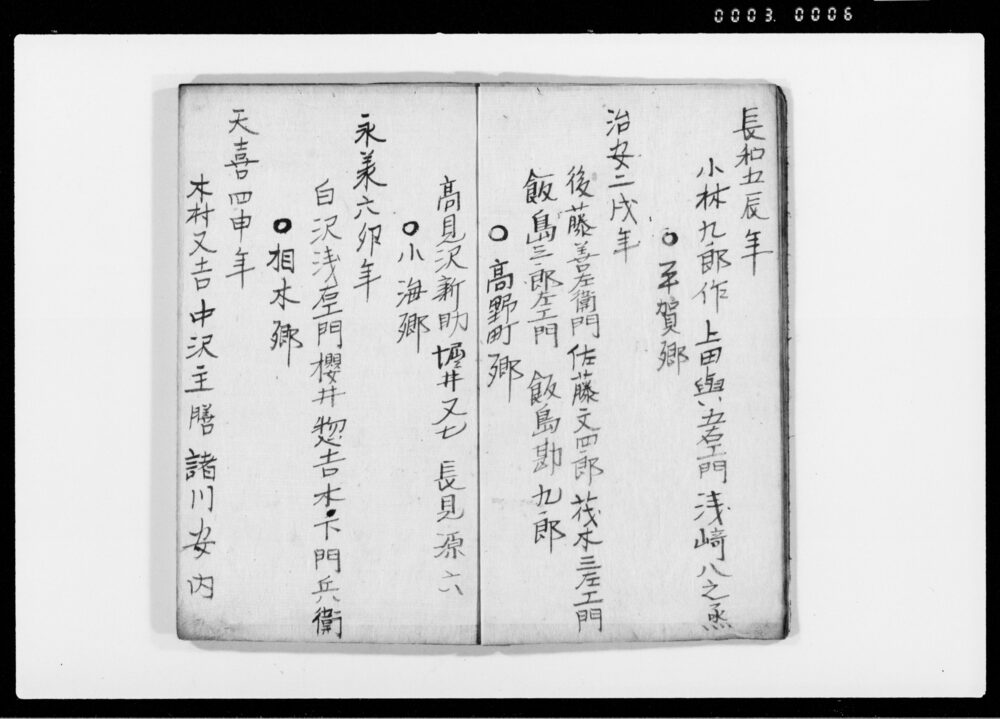 0003.0006
長和五辰年
小林九郎作 上田與五右エ門 浅﨑八之丞
○平賀郷
治安二戌年
後藤善左衛門 佐藤文四郎 茂木三左エ門
飯島三郎左エ門 飯島勘九郎
○高野町郷
高見沢新助 堀井又七 長見源六
○小海郷
永美六卯年
白沢浅右エ門 櫻井惣吉 木下門兵衛
○相木郷
天喜四申年
木村又吉 中沢主膳 諸川安内